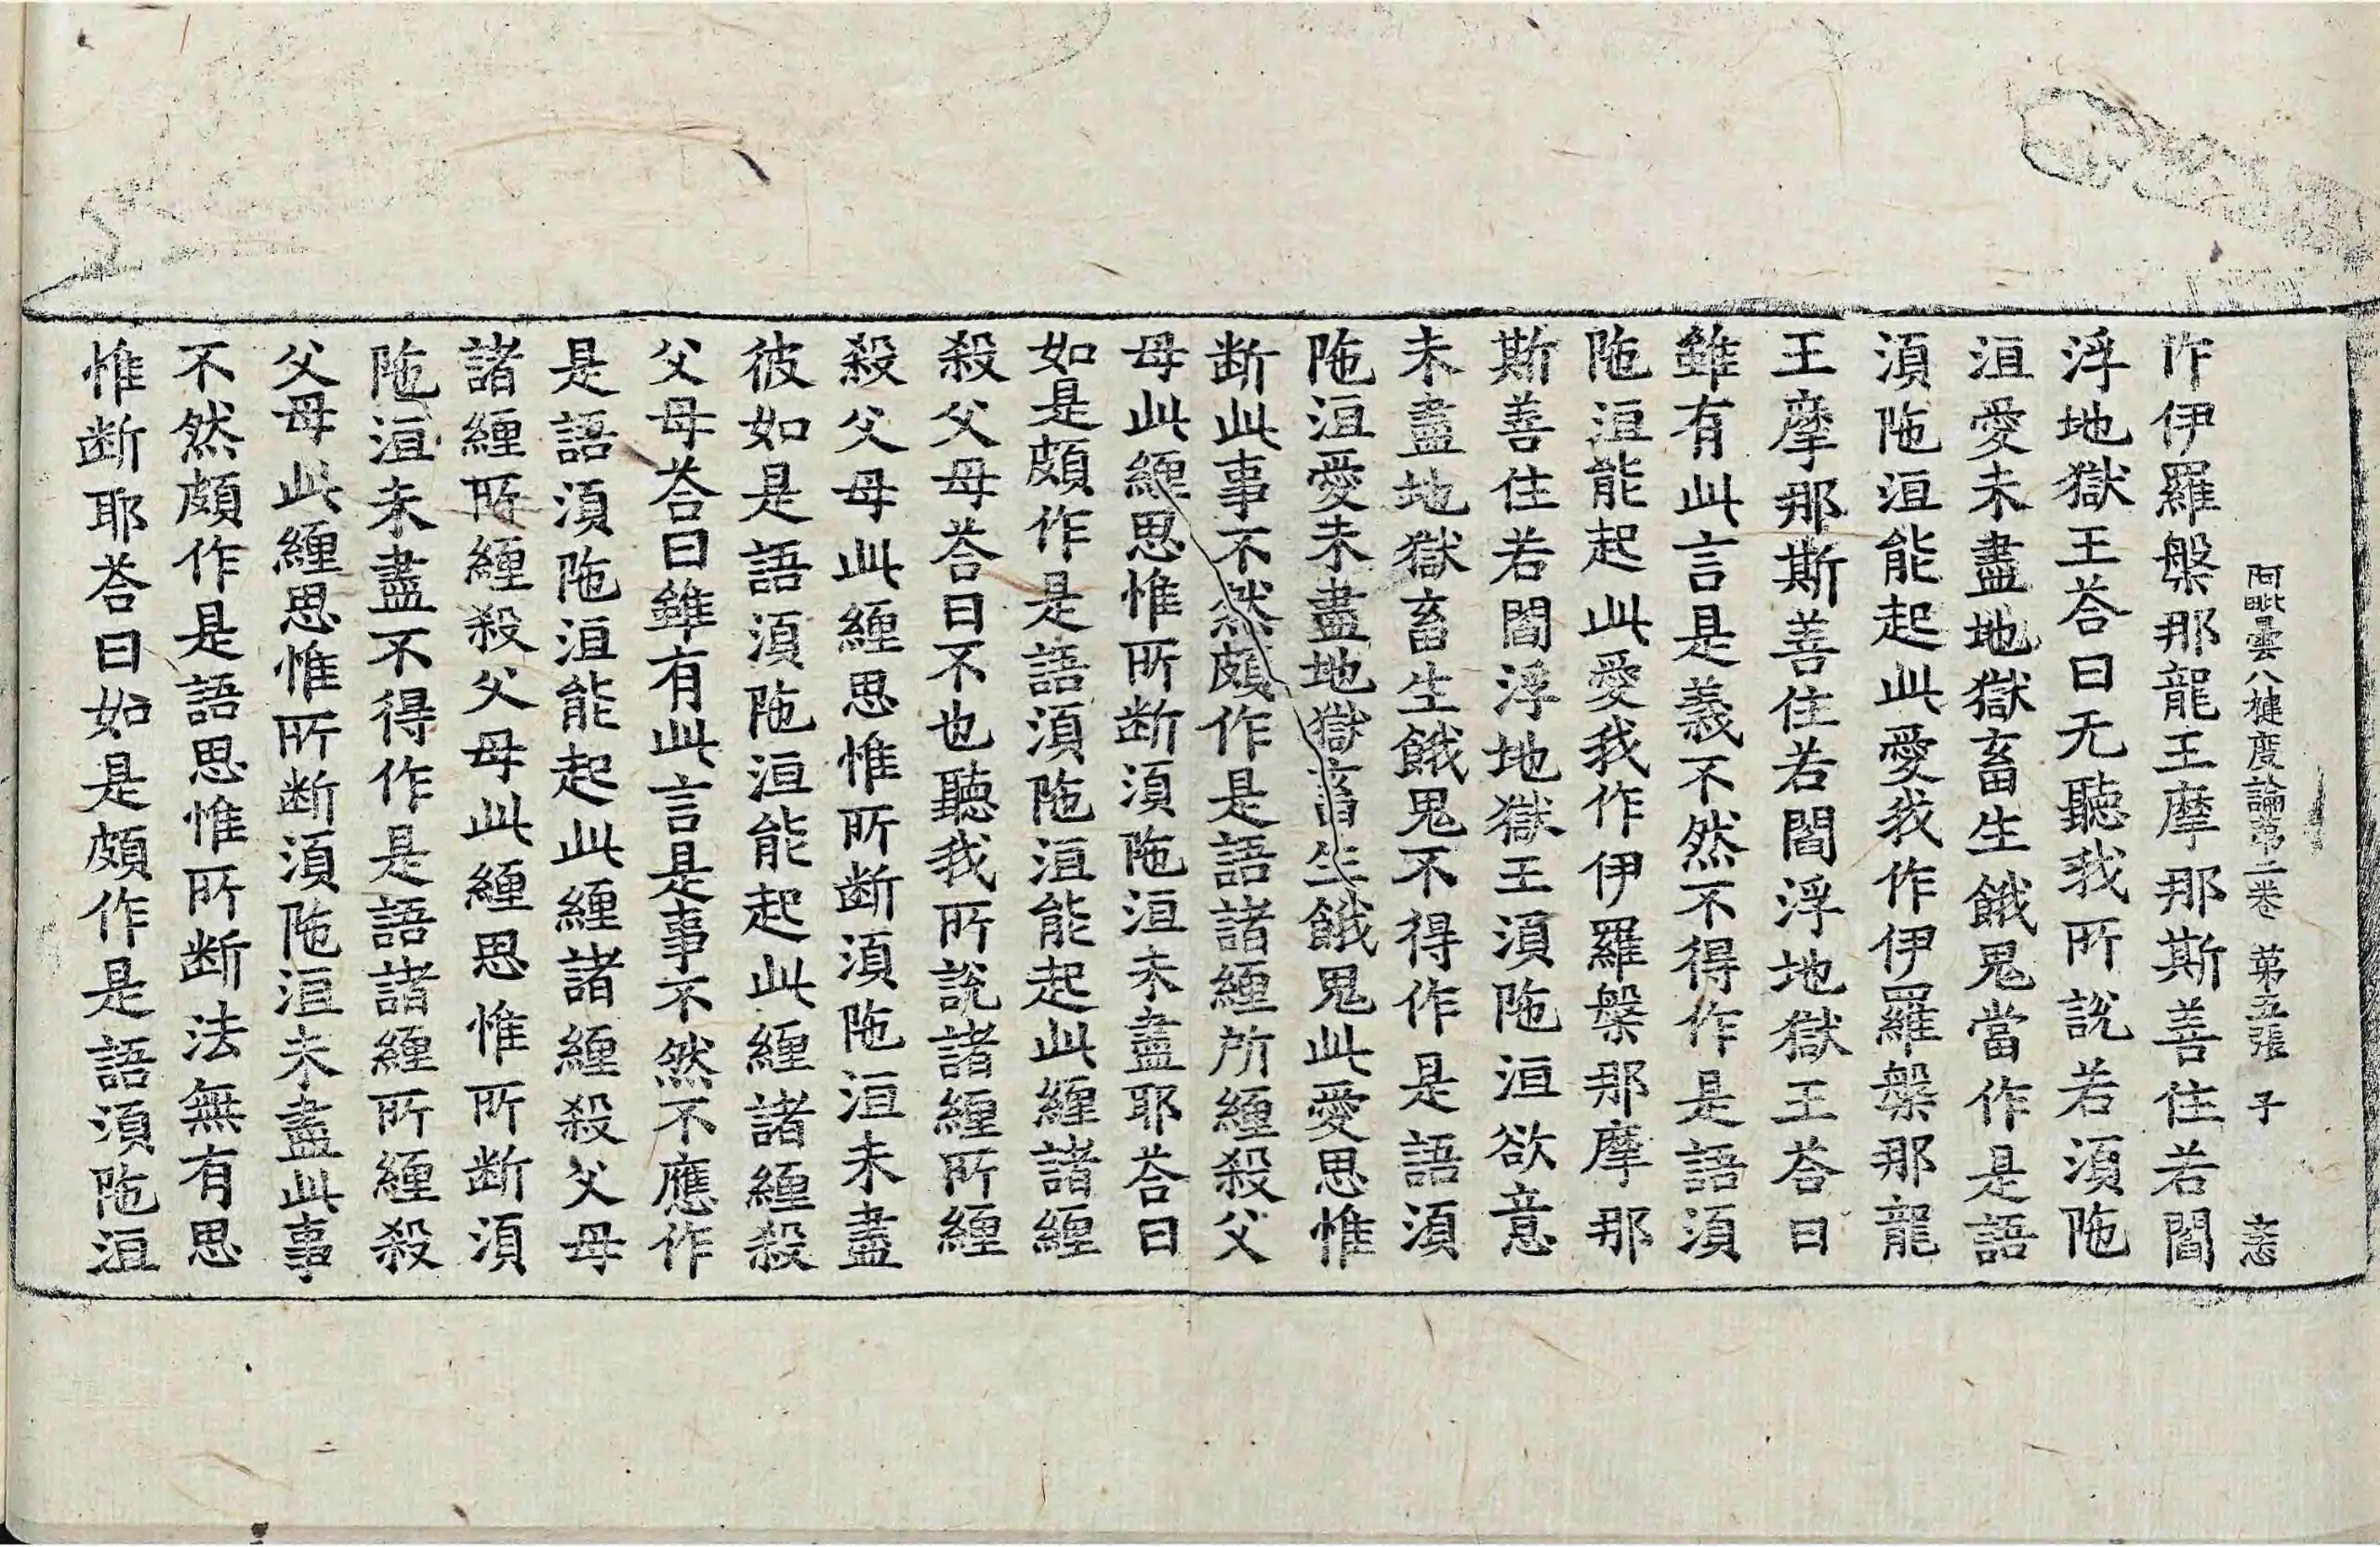 阿毗曇八揵度論第二卷 第五張 子 志
作伊羅槃那龍王摩那斯善住若閻
浮地獄王荅曰无聽我所說若湏陁
洹愛未盡地獄畜生餓鬼當作是語
湏陁洹能起此愛我作伊羅槃那龍
王摩那斯善住若閻浮地獄王荅曰
雖有此言是義不然不得作是語湏
陁洹能起此愛我作伊羅槃那摩那
斯善住若閻浮地獄王湏陁洹欲意
未盡地獄畜生餓鬼不得作是語湏
陁洹愛未盡地獄畜生餓鬼此愛思惟
断此事不然頗作是語諸纏所纏殺父
母此纏思惟所断湏陁洹未盡耶荅曰
如是頗作是語湏陁洹能起此纏諸纏
殺父母荅曰不也聽我所說諸纏所纏
殺父母此纏思惟所断湏陁洹未盡
彼如是語湏陁洹能起此纏諸纏殺
父母荅曰雖有此言是事不然不應作
是語湏陁洹能起此纏諸纏殺父母
諸纏所纏殺父母此纏思惟所断湏
陁洹未盡不得作是語諸纏所纏殺
父母此纏思惟所断湏陁洹未盡此事
不然頗作是語思惟所断法無有思
惟断耶荅曰如是頗作是語湏陁洹